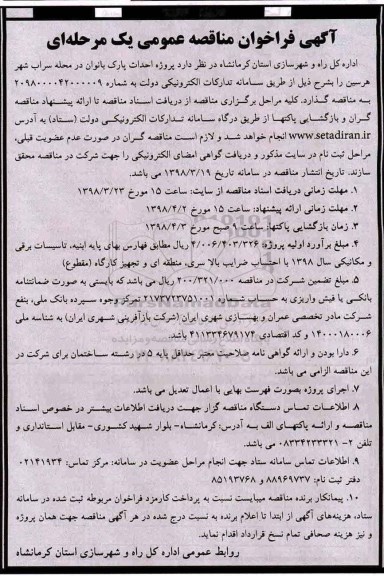 آگهی فراخوان مناقصه عمومی یک مرحله‌ای
اداره کل راه و شهرسازی استان کرمانشاه در نظر دارد پروژه احداث پارک بانوان در محله سراب شهر
هرسین را بشرح ذیل از طریق سامانه تدارکات الکترونیکی دولت به شماره ۲۰۹۸۰۰۰۰۴۲۰۰۰۰۰۹
به مناقصه گذارد. کلیه مراحل برگزاری مناقصه از دریافت اسناد مناقصه تا ارائه پیشنهاد مناقصه
گران و بازگشایی پاکتها از طریق درگاه سامانه تدارکات الکترونیکی دولت (ستاد) به آدرس
www.setadiran.ir انجام خواهد شد و لازم است مناقصه گران در صورت عدم عضویت قبلی،
مراحل ثبت نام در سایت مذکور و دریافت گواهی امضای الکترونیکی را جهت شرکت در مناقصه محقق
سازند. تاریخ انتشار مناقصه در سامانه تاریخ ۱۳۹۸/۳/۱۹ می باشد.
۱. مهلت زمانی دریافت اسناد مناقصه از سایت: ساعت ۱۵ مورخ ۱۳۹۸/۳/۲۳
۲. مهلت زمانی ارائه پیشنهاد: ساعت ۱۵ مورخ ۱۳۹۸/۴/۲
۳. زمان بازگشایی پاکتها: ساعت ۹ صبح مورخ ۱۳۹۸/۴/۳
۴. مبلغ برآورد اولیه پروژه: ۴/۰۰۶/۴۰۳/۳۲۶ ریال مطابق فهارس بهای پایه ابنیه، تاسیسات برقی و
مکانیکی سال ۱۳۹۸ با احتساب ضرایب بالا سری، منطقه ای و تجهیز کارگاه (مقطوع)
۵. مبلغ تضمین شرکت در مناقصه ۲۰۰/۳۲۱/۰۰۰ ریال می باشد که بایستی به صورت ضمانتنامه
بانکی یا فیش واریزی به حساب شماره ۲۱۷۳۷۲۳۷۵۱۰۰۱ تمرکز وجوه سپرده بانک ملی، بنفع
شرکت مادر تخصصی عمران و بهسازی شهری ایران (شرکت بازآفرینی شهری ایران) به شناسه ملی
۱۴۰۰۰۱۸۰۰۰۶ و کد اقتصادی ۴۱۱۳۳۴۶۷۹۱۷۴ باشد.
۶. دارا بودن و ارائه گواهی نامه صلاحیت معتبر حداقل پایه ۵ در رشته ساختمان برای شرکت در
این مناقصه الزامی می باشد.
۷. اجرای پروژه بصورت فهرست بهایی با اعمال تعدیل می باشد.
۸. اطلاعات تماس دستگاه مناقصه گزار جهت دریافت اطلاعات بیشتر در خصوص اسناد
مناقصه و ارائه پاکتهای الف به آدرس: کرمانشاه- بلوار شهید کشوری- مقابل استانداری و
تلفن ۲- ۰۸۳۳۴۲۳۳۳۲۱ می باشد.
۹. اطلاعات تماس سامانه ستاد جهت انجام مراحل عضویت در سامانه: مرکز تماس: ۰۲۱۴۱۹۳۴
دفتر ثبت نام: ۸۸۹۶۹۷۳۷ و ۸۵۱۹۳۷۶۸
۱۰. پیمانکار برنده مناقصه میبایست نسبت به پرداخت کارمزد فراخوان مربوطه ثبت شده در سامانه
ستاد، هزینه‌های آگهی از ابتدا تا اعلام برنده به نسبت درج شده در هر آگهی مناقصه جهت همان پروژه
و نیز هزینه صحافی تمام نسخ قرارداد اقدام نماید.
روابط عمومی اداره کل راه و شهرسازی استان کرمانشاه